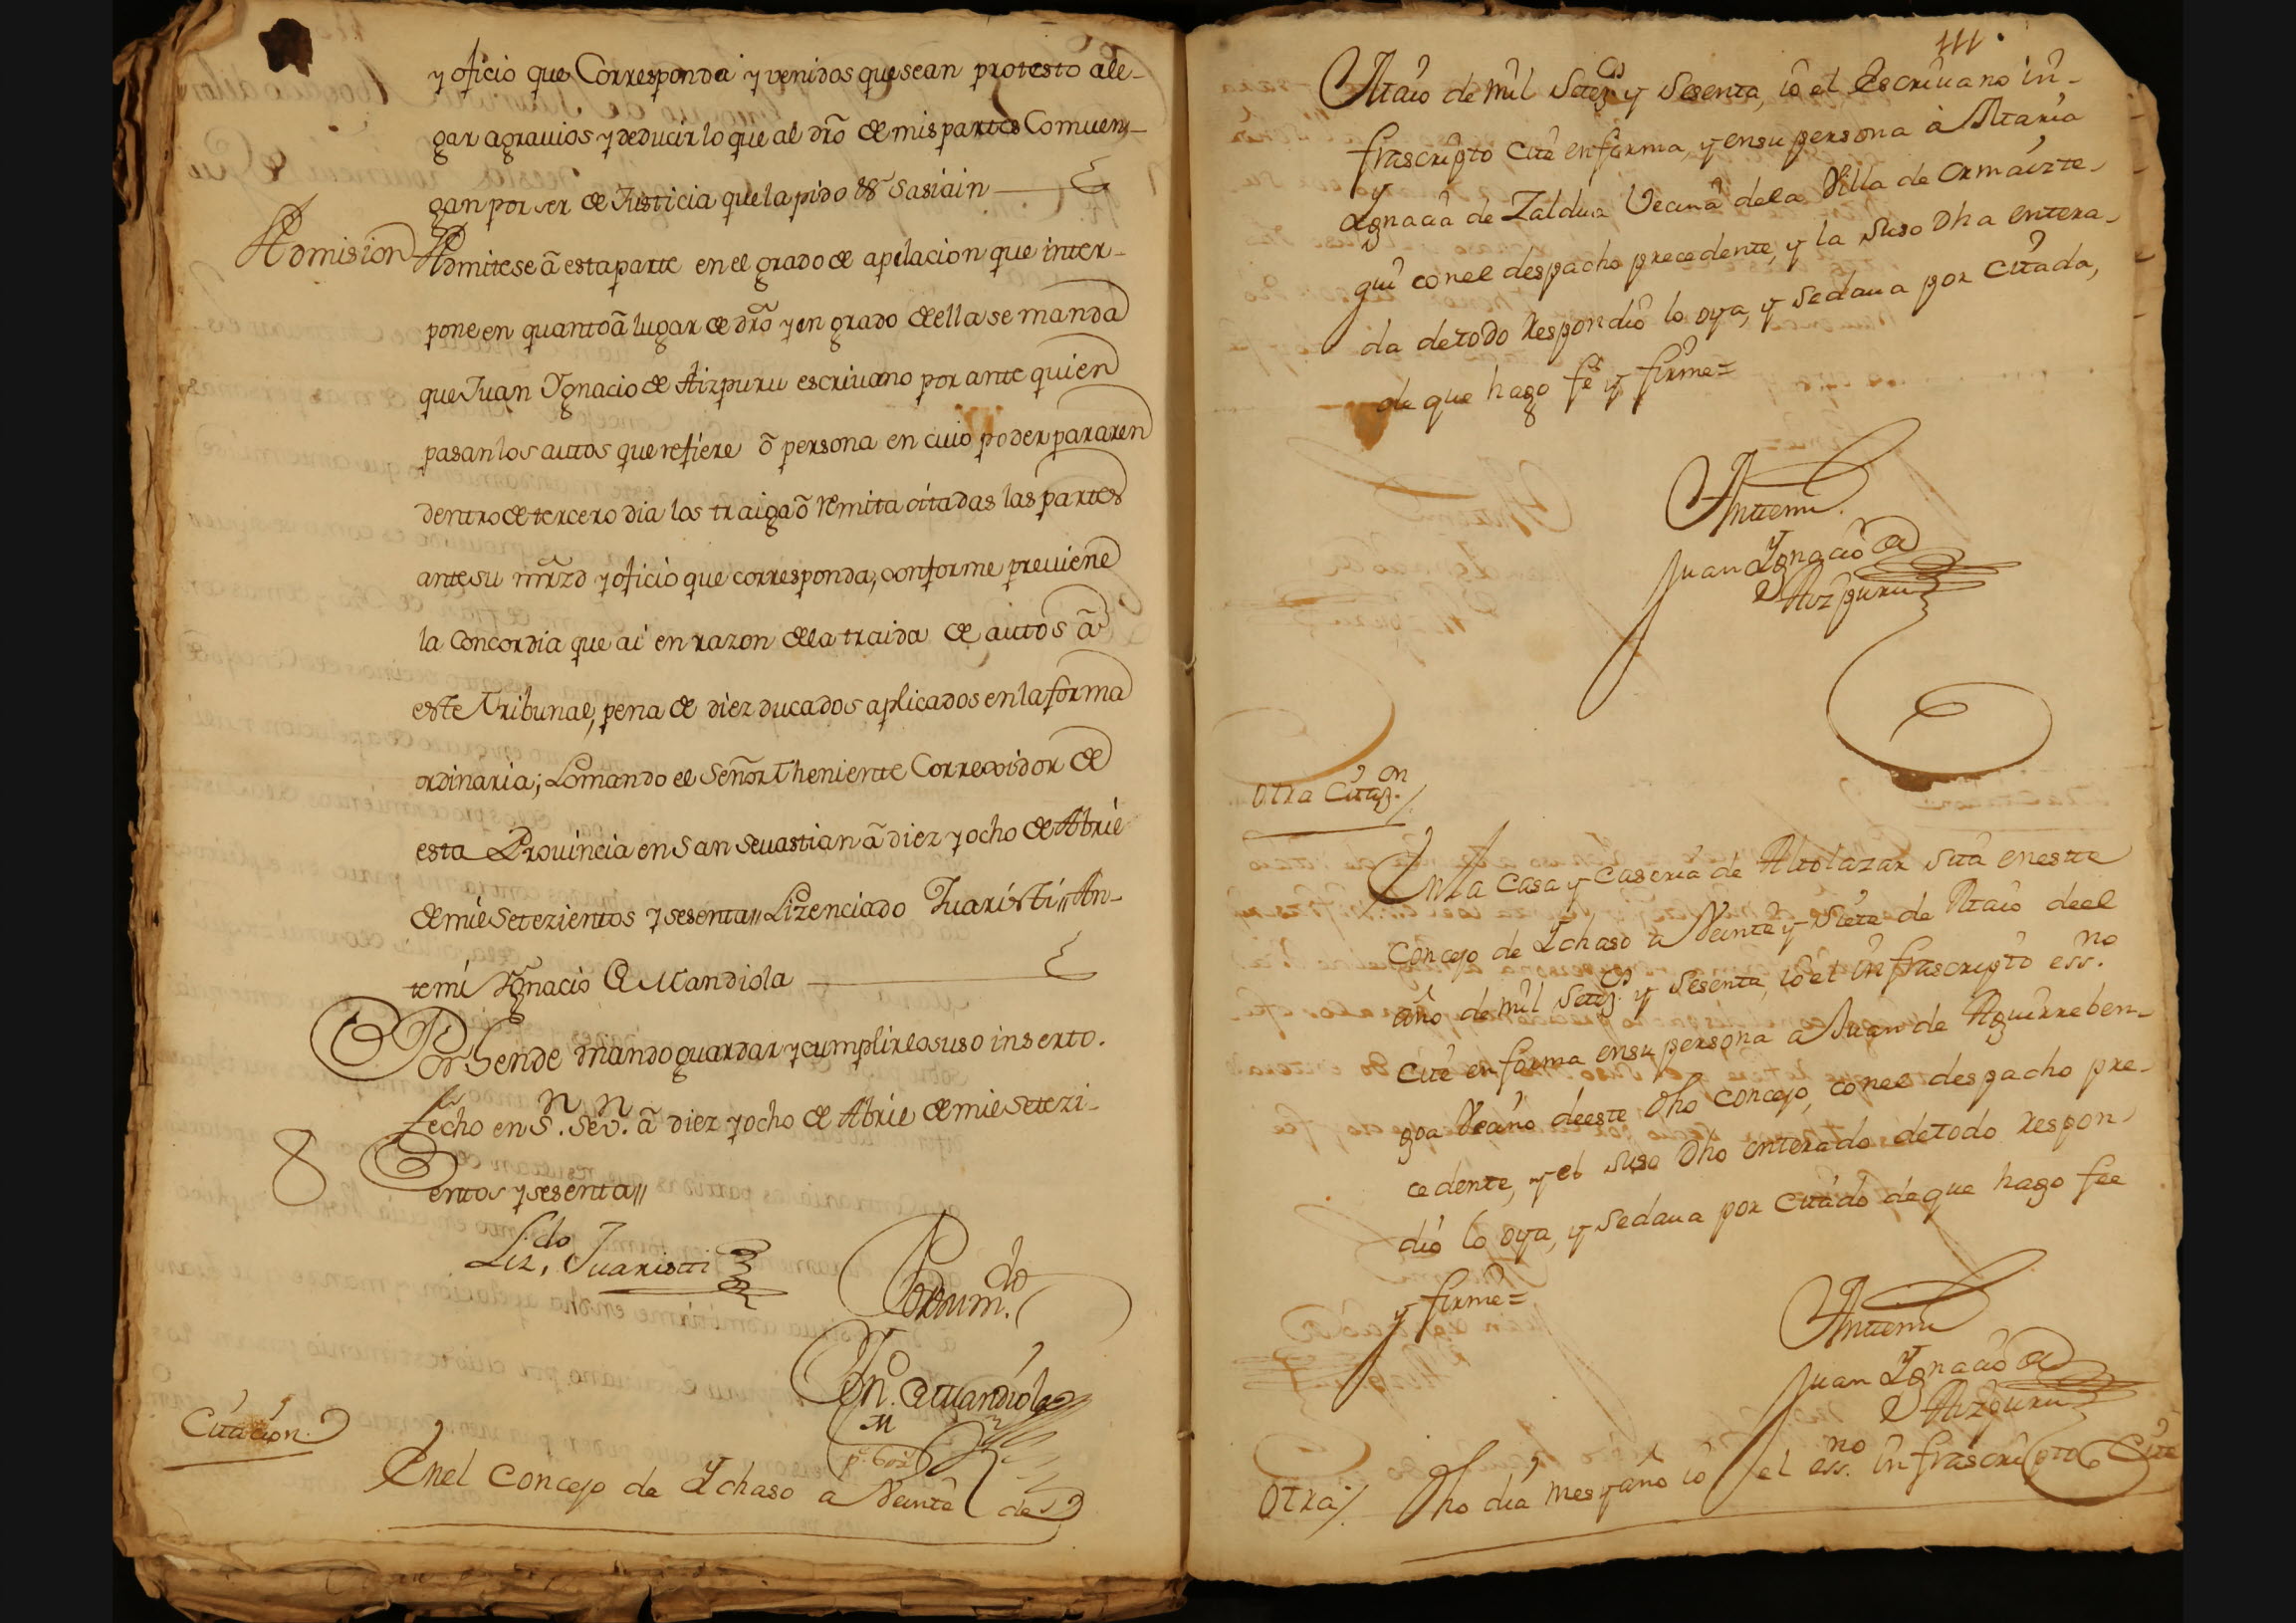 y oficio que Corresponda y venidos que sean protesto ale-
gar agravios y deducir lo que al dr̃o de mis partes Comuen-
gan por ser de Justicia que la pido &ª Sasiain
Admision
Admitese â esta parte en el grado de apelacion que inter-
pone en quanto â lugar de dr̃o y en grado de ella se manda
que Juan Ygnacio de Aizpuru escriuano por ante quien
pasan los autos que refiere ô persona en cuio poder pararen
dentro de tercero dia los traiga ô remita citadas las partes
ante su mr̃zd y oficio que corresponda, conforme preuiene
la Concordia que ai en razon de la traida de autos â
este Tribunal, pena de diez ducados aplicados en la forma
ordinaria; Lo mando el Señor Theniente Correxidor de
esta Prouincia en San Seuastian â diez y ocho de Abril
de mil Setezientos y sesenta,, Lizenciado Juaristi,, An-
temi Ygnacio de Mandiola
Por Ende mando guardar y cumplir lo suso inserto.
fecho en S.n Sev.n â diez y ocho de Abril de mil Setezi-
8
entos y sesenta,,
Liz.do Juaristi
Por su m.do
Yn.o de Mandiola
Citación.
Enel Concejo de Ychaso a Veinte de
111.
Maio de mil Setez.s y Sesenta, io el Escriuano in-
frascripto Cite en forma, y en su persona à Maria
Ygnacia de Zaldua Vecina de la Villa de Ormaizte-
gui con el despacho precedente, y la Suso Dha entera-
da de todo Respondio lo oya, y se daua por Citada,
de que hago fé y firme=
Antemi.
Juan Ygnacio de
Aizpuru
Otra Citaz.on
En la Casa y Caseria de Altolazar Sita en este
Concejo de Ychaso a Veinte y Siete de Maio de el
año de mil Setez.s y Sesenta, io el infrascripto ess.no
Cite en forma en su persona a Juan de Aguirreben-
goa Vecino de este Dho Concejo, con el despacho pre-
cedente, y el suso Dho enterado de todo Respon-
dió lo oya, y se daua por Citado de que hago fee
y firme=
Antemi
Juan Ygnacio de
Aizpuru
Otra
Dho dia mes y año io el ess.no infrascripto Cite